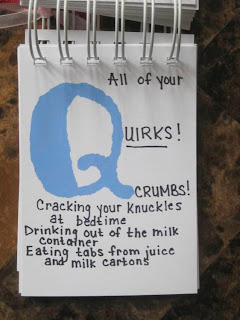 All of your
QUIRKS!
CRUMBS!
Cracking your Knuckles
at bedtime
Drinking out of the milk
container
Eating tabs from juice
and milk cartons